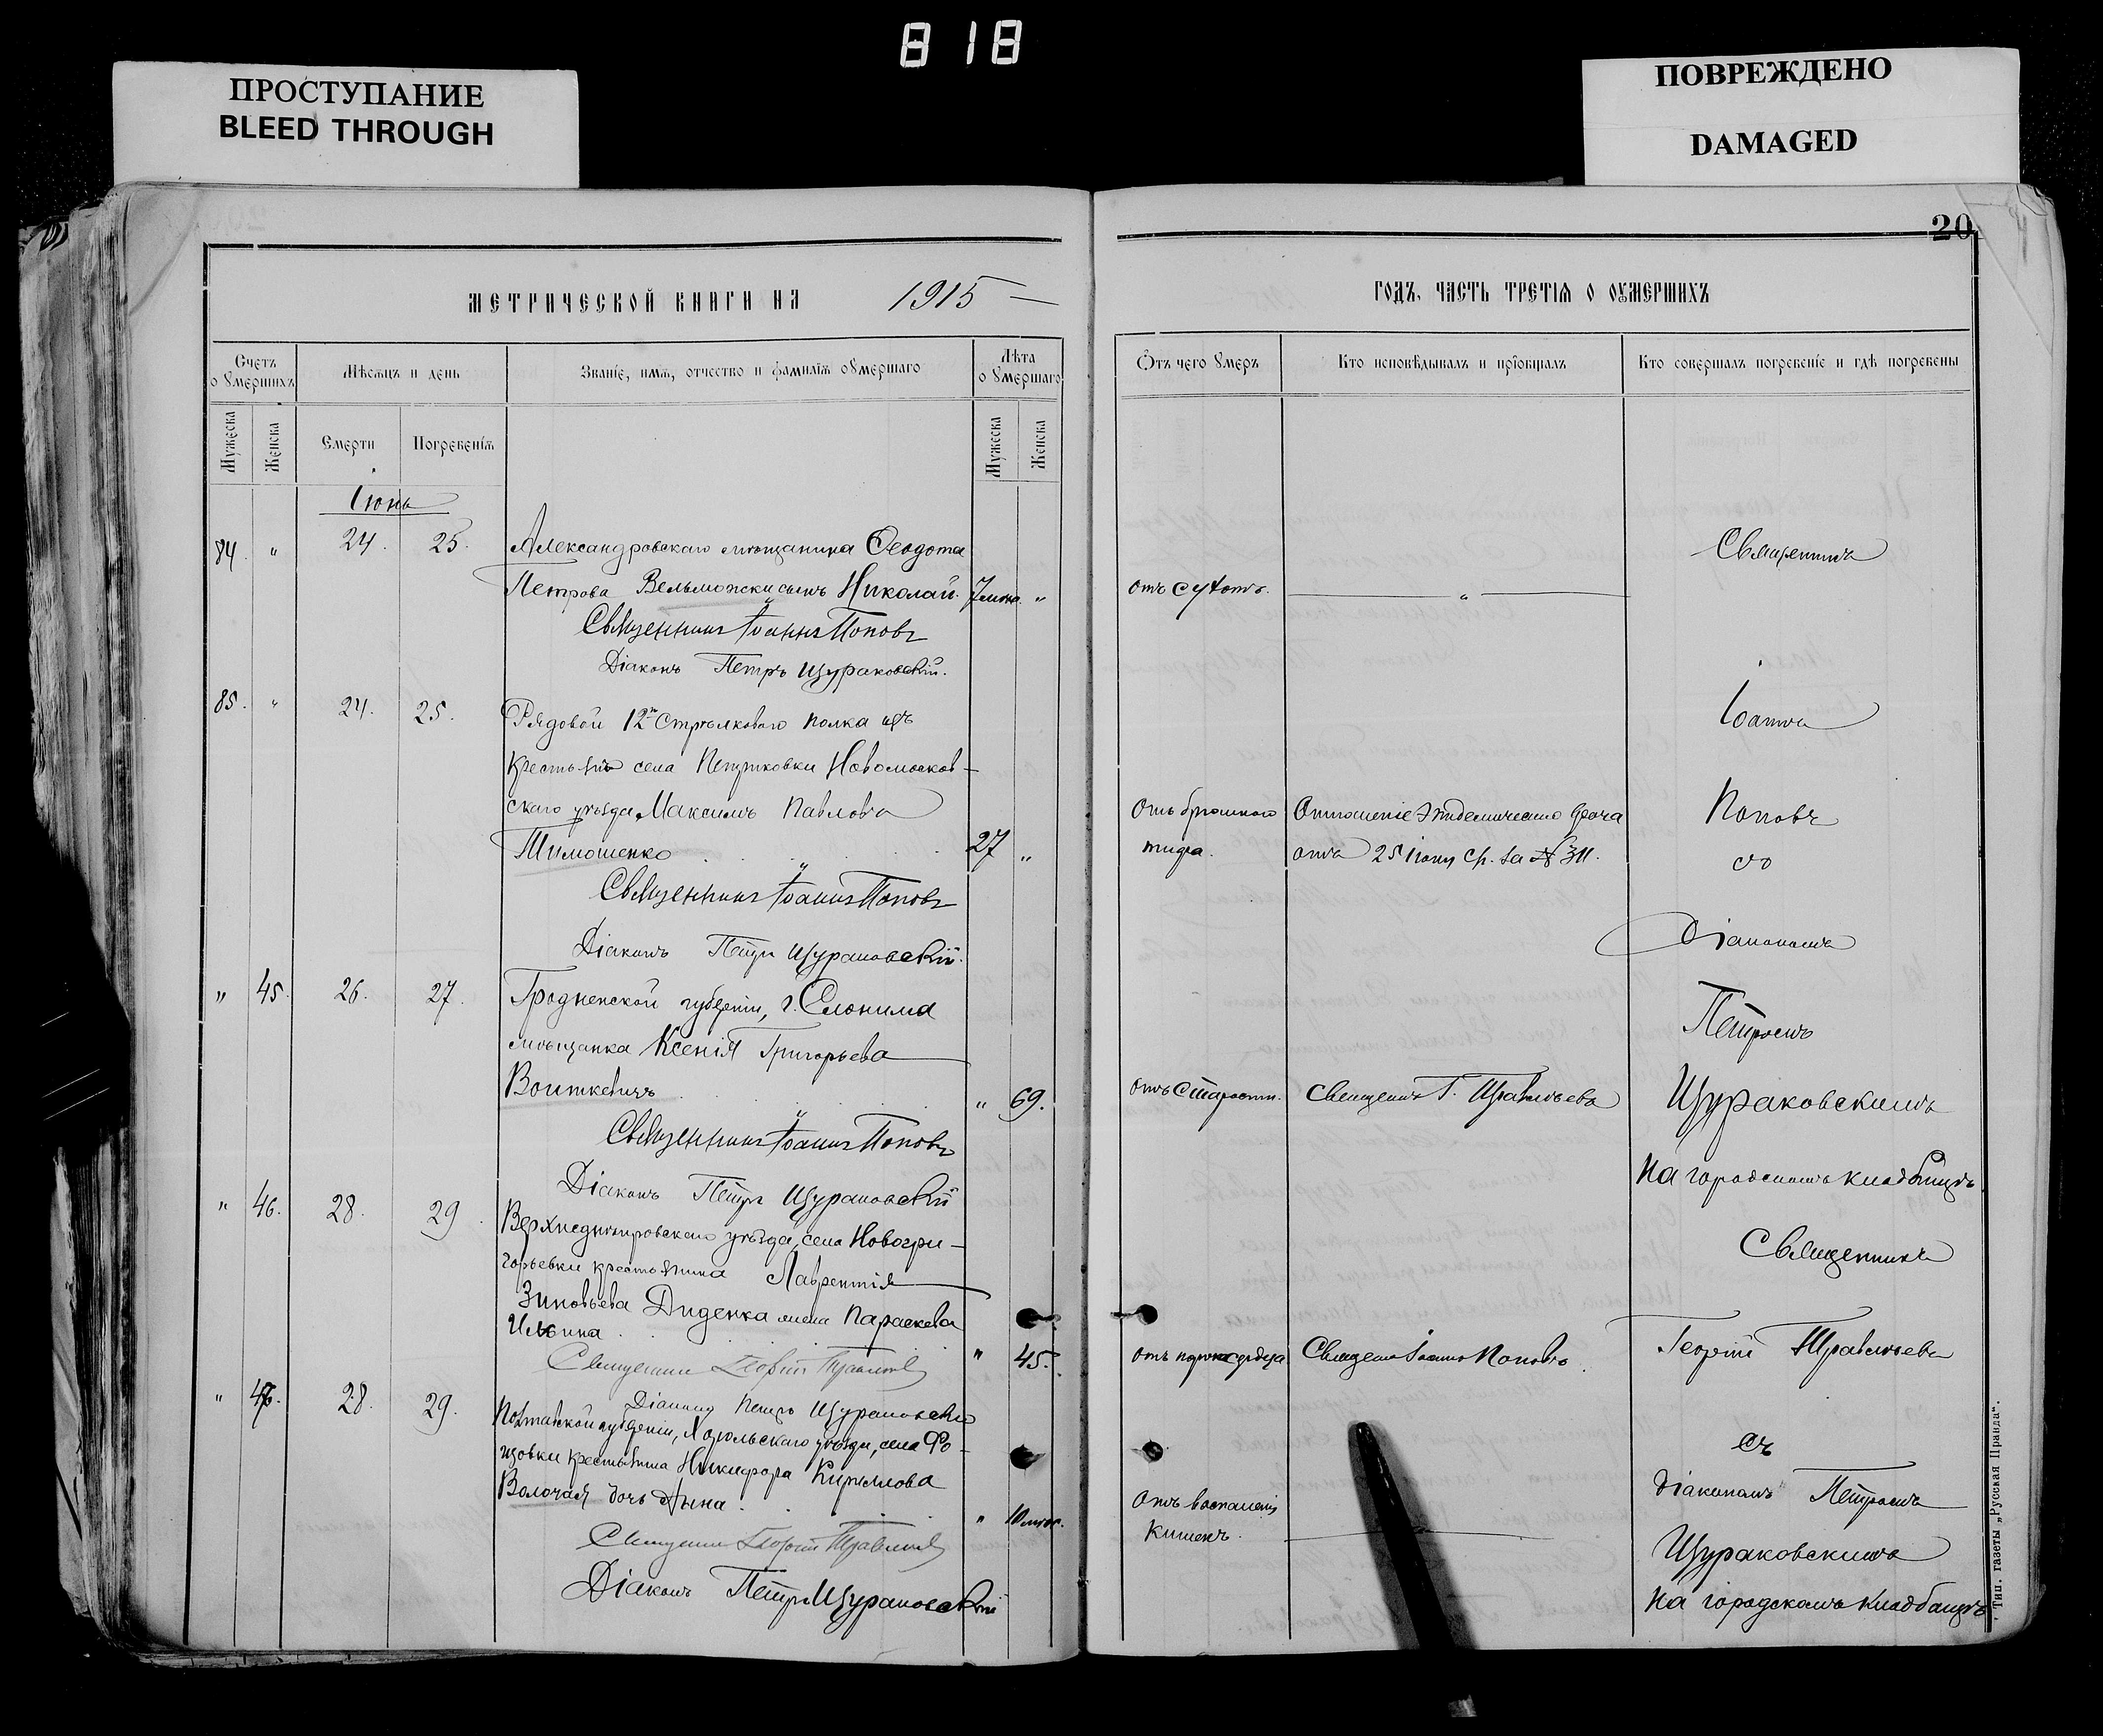 818
ПРОСТУПАНИЕ
BLEED THROUGH
ПОВРЕЖДЕНО
DAMAGED
20
МЕТРИЧЕСКОЙ КНИГИ НА 1915
ГОДЪ, ЧАСТЬ ТРЕТІЯ О ОУМЕРШИХЪ
Счетъ о умершихъ
Мѣсяцъ и день
Званіе, имя, отчество и фамилія оумершаго
Лѣта оумершаго
Отъ чего умеръ
Кто исповѣдывалъ и пріобщалъ
Кто совершалъ погребеніе и гдѣ погребены
Мужеска
Женска
Смерти
Погребенія
Мужеска
Женска
Іюнь
84. " 24. 25. Александровскаго мѣщанина Ѳеодота
Петрова Вельможки сынъ Николай. "
Священникъ Іоаннъ Поповъ
Діаконъ Петръ Щураковскій.
85. " 24. 25. Рядовой 12го Стрѣлковаго полка изъ
крестьянъ села Петриковки Новомосков-
скаго уѣзда Максимъ Павловъ
Тимошенко 27 "
Священникъ Іоаннъ Поповъ
Діаконъ Петръ Щураковскій.
" 45. 26. 27. Гродненской губерніи, г. Слонима
мѣщанка Ксенія Григорьева
Войткевичъ " 69.
Священникъ Іоаннъ Поповъ
Діаконъ Петръ Щураковскій
" 46. 28. 29. Верхнеднѣпровскаго уѣзда, села Новогри-
горьевки крестьянина Лаврентія
Зиновьева Диденка жена Параскева
Ильина " 45.
Священникъ Георгій
Діаконъ Петръ Щураковскій
" 47. 28. 29. Полтавской губерніи, Хорольскаго уѣзда, села
крестьянина Никифора Кириллова
Волочая дочь Анна "
Священникъ Георгій
Діаконъ Петръ Щураковскій
отъ
Отъ брюшного
тифа.
Отношеніе Эпидемическаго врача
отъ 25 Іюня с/г. за № 311.
отъ старости.
Священникъ Г.
отъ порока сердца
Священ. Іоаннъ Поповъ.
Отъ воспаленія
кишекъ.
Священникъ
Іоаннъ
Поповъ
со
Діакономъ
Петромъ
Щураковскимъ
на городскомъ кладбищѣ
Священникъ
Георгій
съ
Діакономъ Петромъ
Щураковскимъ
на городскомъ кладбищѣ
Тип. газеты „Русская Правда“.